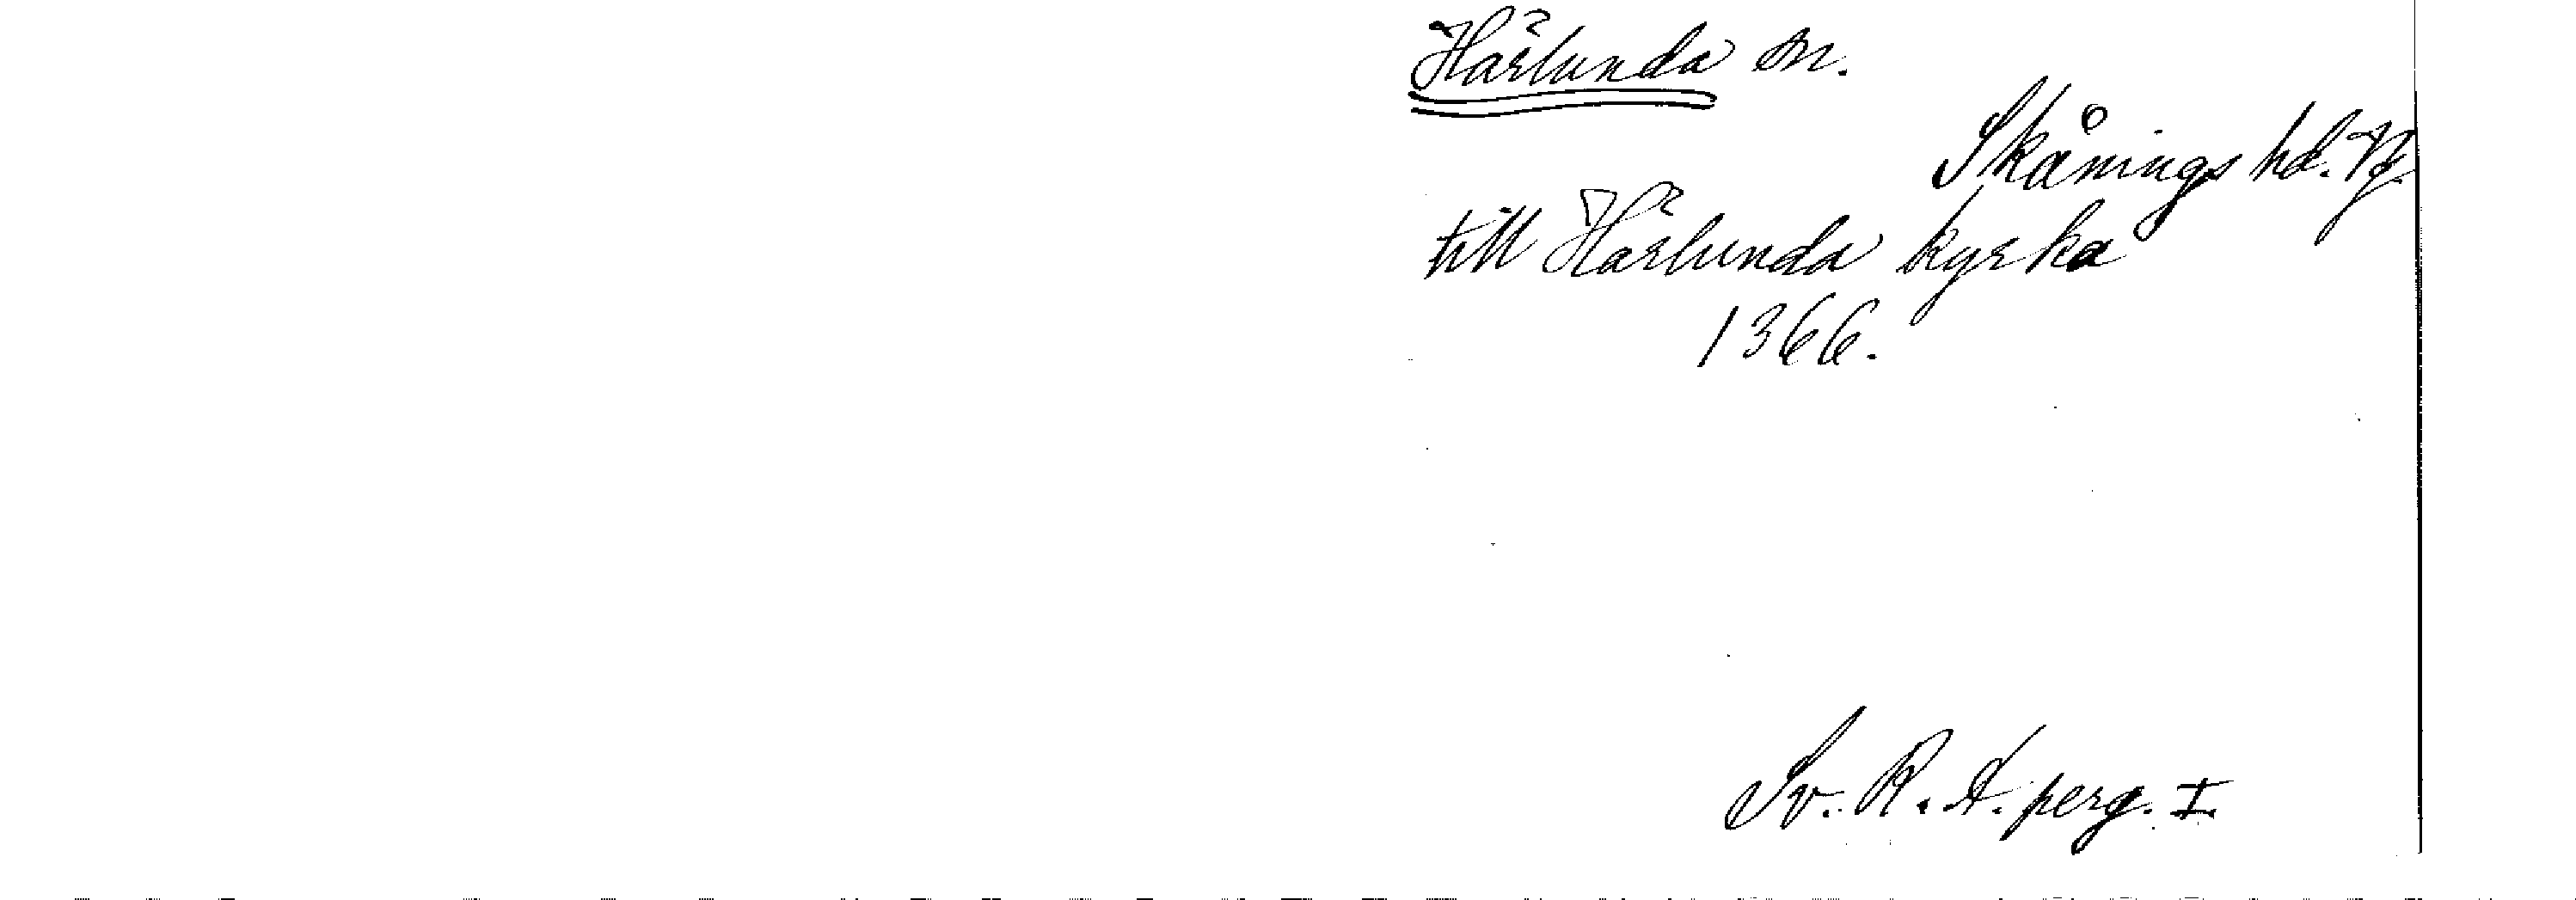 Härlunda sn.
Skånings hd. Vg.
till Härlunda kyrka
1366.
Sv. R. A. perg. I.